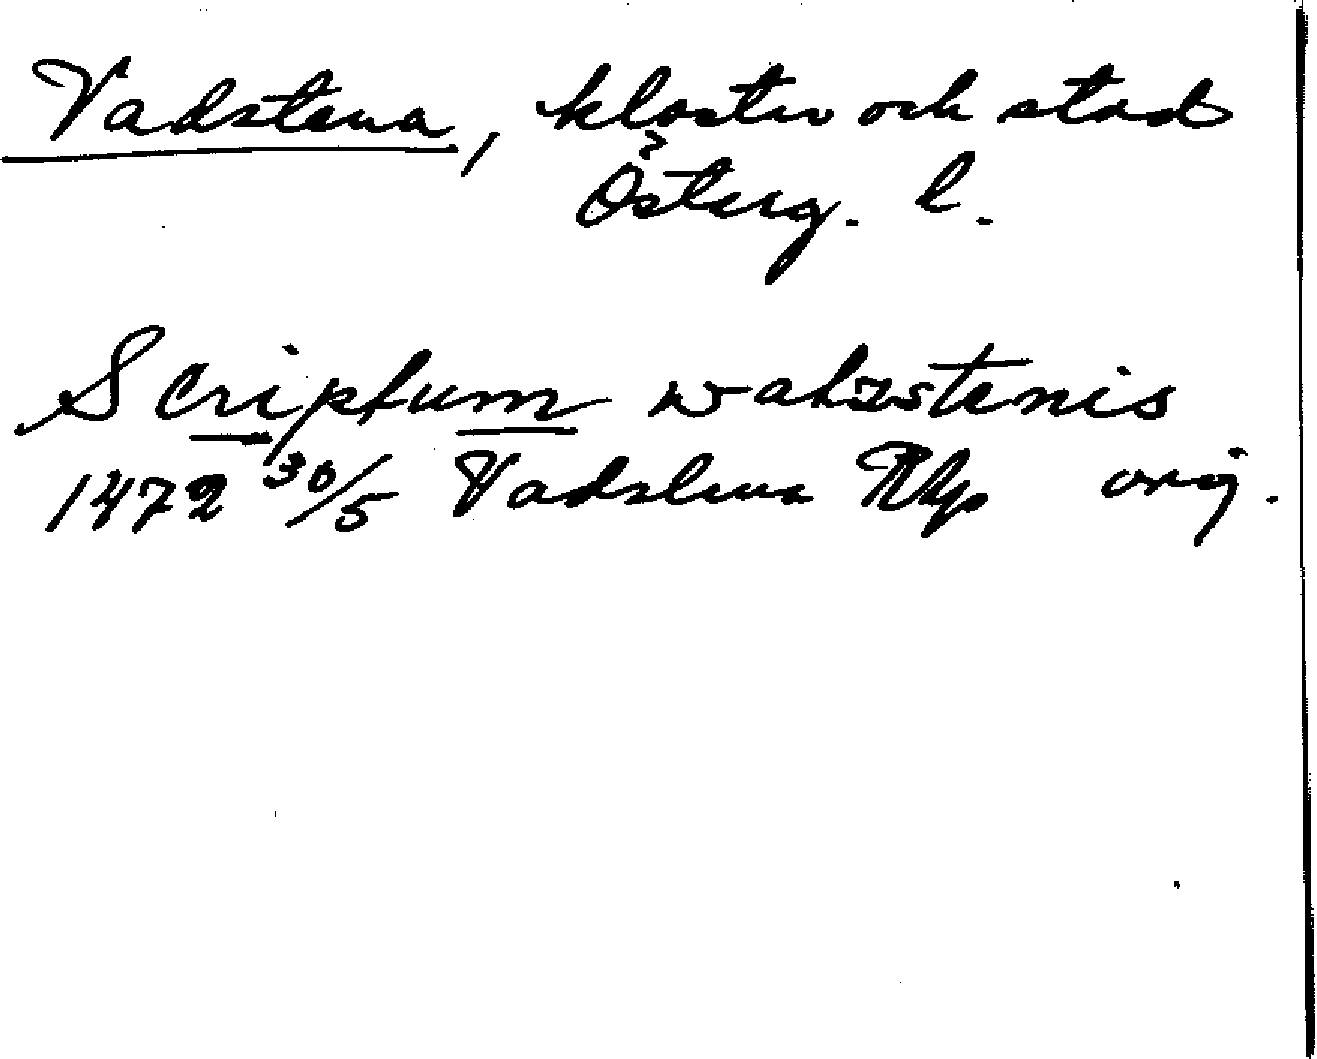 Vadstena, kloster och stad
Österg. l.
Scriptum wahzstenis
1472 30/5 Vadstena Rkp orig.